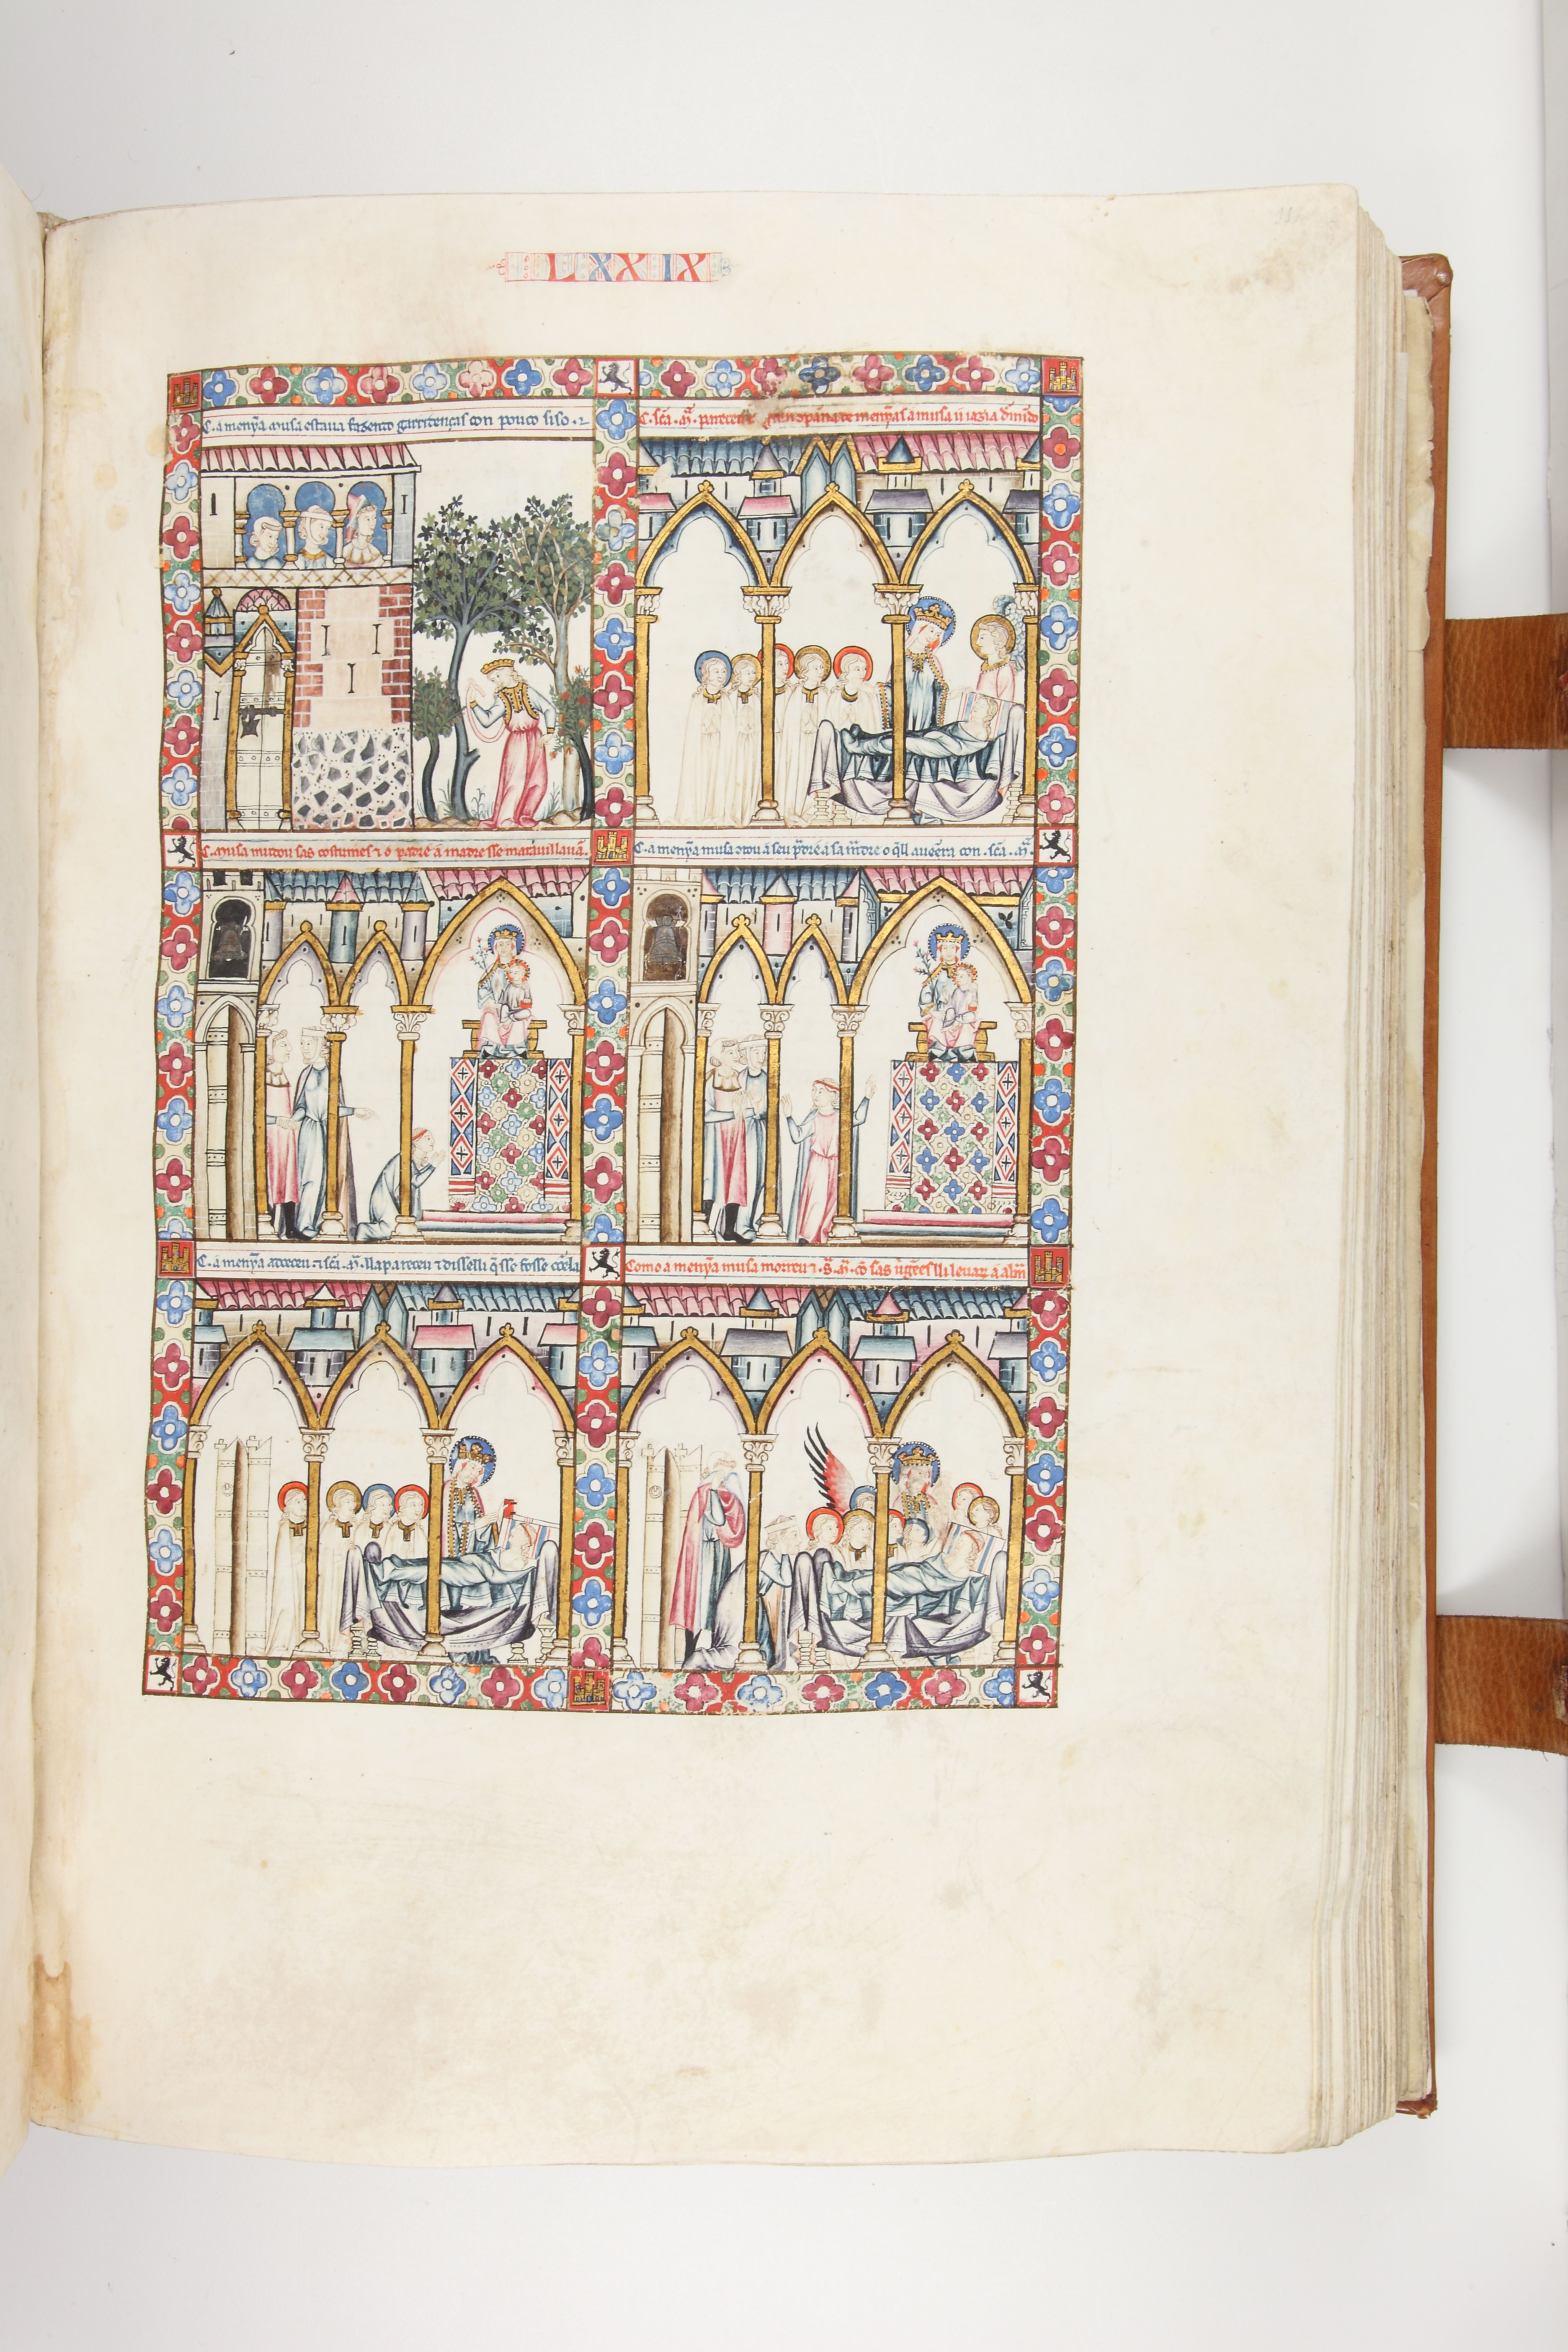 LXXIX
C. a meny̅a musa estaua fazendo garridenças con pouco siso. ⁊
C. sc̅a. m̅. pareceu gran conpan̅a de meny̅as a musa u iazia
C. musa mudou sas costumes ⁊ o padre a madre sse marauillauã.
C. a meny̅a musa ɔtou a seu p̅dre a sa m̅dre o q̅ll auẽera con. sc̅a. m̅.
C. a meny̅a adoeceu ⁊ sc̅a. m̅. ll apareceu ⁊ disselli q̅ sse fosse
Como a meny̅a musa morreu ⁊. s̅. m̅. cõ sas uirgẽes lli leuar a alm̅